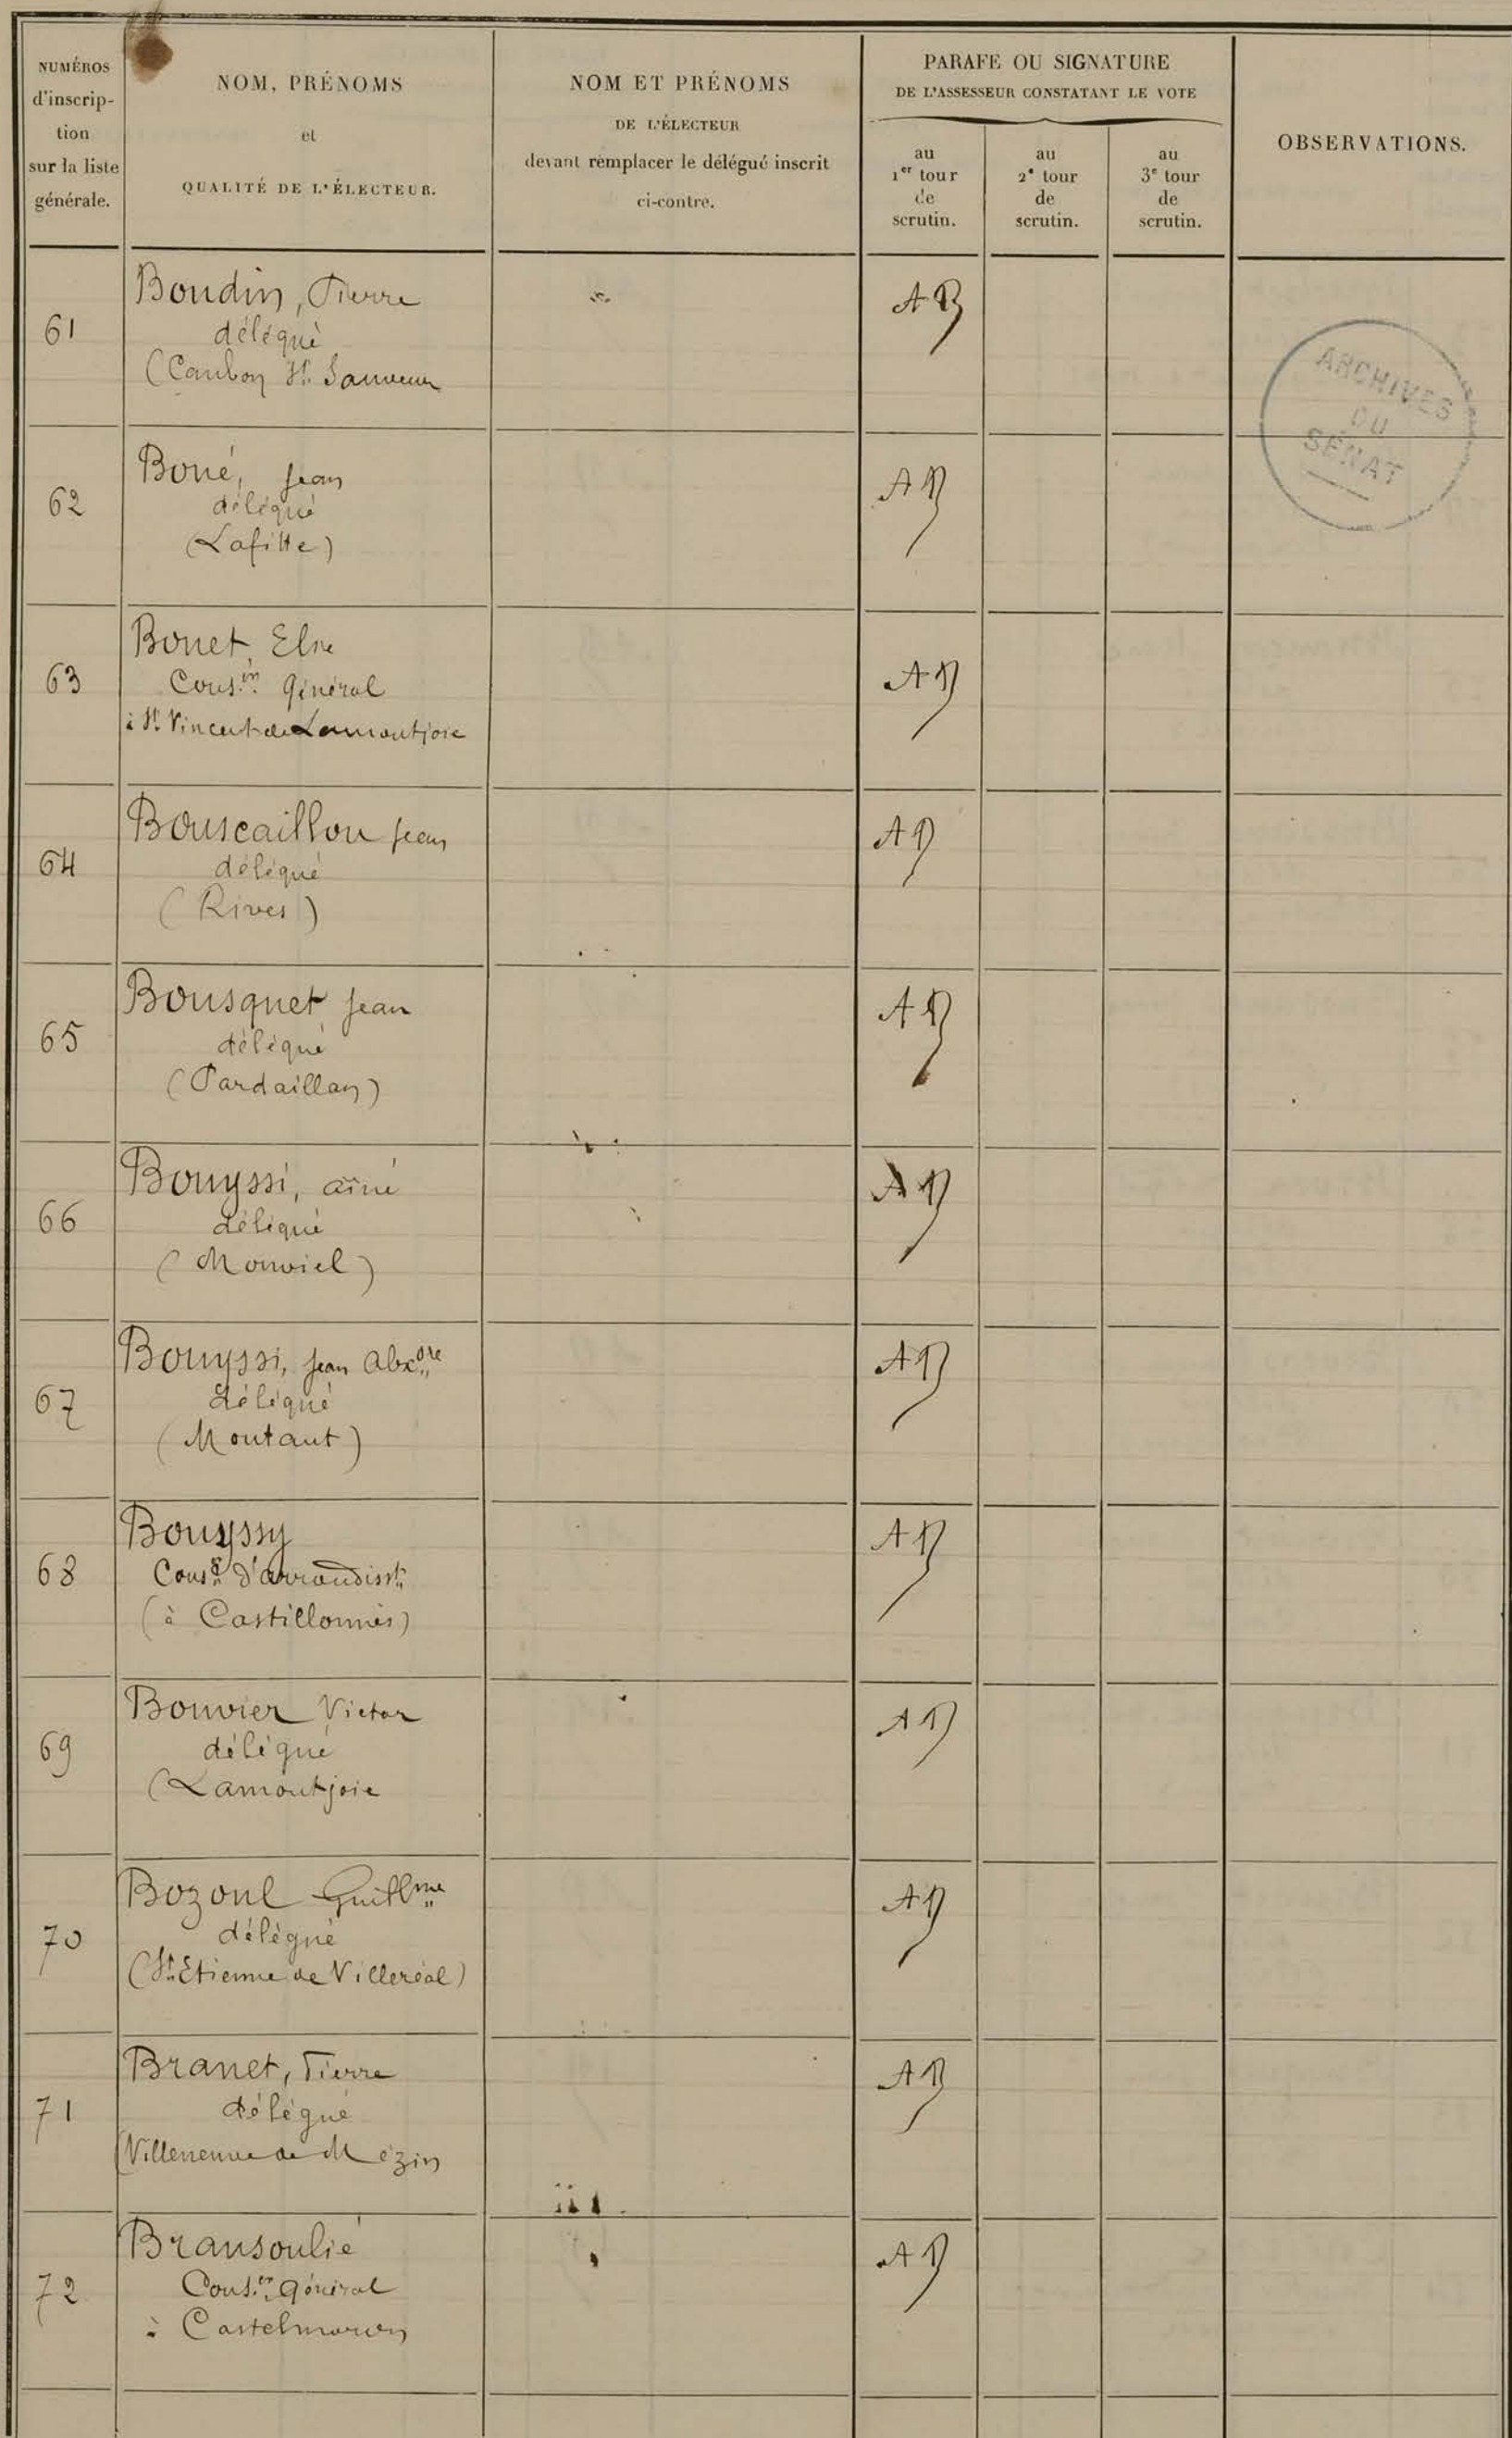 NUMÉROS
d'inscrip-
tion
sur la liste
générale.
NOM, PRÉNOMS
et
QUALITÉ DE L'ÉLECTEUR.
NOM ET PRÉNOMS
DE L'ÉLECTEUR
devant remplacer le délégué inscrit
ci-contre.
PARAFE OU SIGNATURE
DE L'ASSESSEUR CONSTATANT LE VOTE
au
1er tour
de
scrutin.
au
2e tour
de
scrutin.
au
3e tour
de
scrutin.
OBSERVATIONS.
61
Boudin, Pierre
délégué
(Caubon St. Sauveur
AB
ARCHIVES
DU
SÉNAT
62
Boué, Jean
délégué
(Lafitte)
AB
63
Bouet, Elie
Cons.er Général
à St. Vincent de Lamontjoie
AB
64
Bouscaillou Jean
délégué
(Rives)
AB
65
Bousquet Jean
délégué
(Pardaillan)
AB
66
Bouyssi, aîné
délégué
(Monviel)
AB
67
Bouyssi, Jean Alexdre
délégué
(Montaut)
AB
68
Bouyssy
Conser d'arrondisst
(à Castillonnès)
AB
69
Bouvier Victor
délégué
(Lamontjoie
AB
70
Bozoul Guillme
délégué
(St Etienne de Villeréal)
AB
71
Branet, Pierre
délégué
(Villeneuve de Mézin
AB
72
Bransoulié
Cons.er Général
à Castelmoron
AB